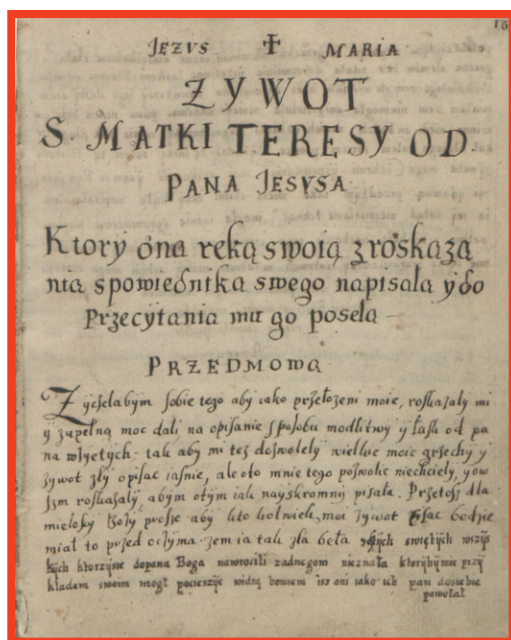 18
JEZVS ✝ MARIA
ZYWOT
S. MATKI TERESY OD.
PANA JESVSA
Ktory ona ręką swoią zroskaza
nia spowiednika swego napisala y do
Przecytania mu go posela
PRZEDMOWA
Zyczelabym sobie tego aby iako przełozeni moie, roskazaly mi
y zupełną moc dali na opisanie sposobu modlitwy y łask od pa
na wzyetych: tak aby mi tez dozwolely wielkie moie grzechy y
zywot zły opisac iasnie, ale oto mnie tego pozwolic niechciely, yow
szm roskazaly abym otym iak nayskromny pisala. Przetosz dla
miełosky bozy prosze aby kto kolwiek moi zywot cytac bedzie
miał to przed oczyma zem ia tak zla beła swiętych wszys
kych ktorzysie dopana Boga nawrocili zadnego nieznała ktorybymie przy
kładem swoim mogł pocieszyc widzą bowiem isz oni iako ich pan dosiebie
powołał